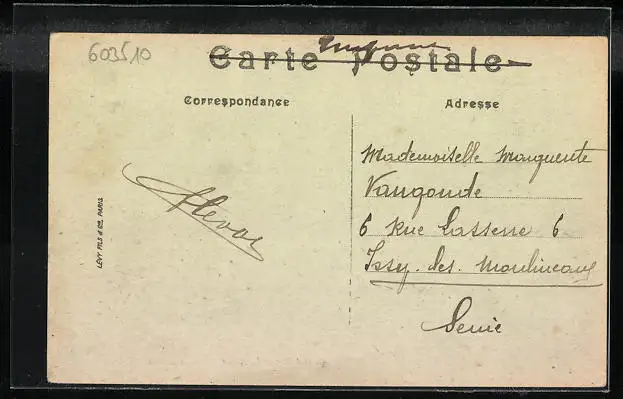 603510
Carte Postale
Correspondance
Adresse
Mademoiselle Marguerite
6 Rue Lasserre 6
Issy-les-Moulineaux
Seine
LEVY FILS & Cie, PARIS